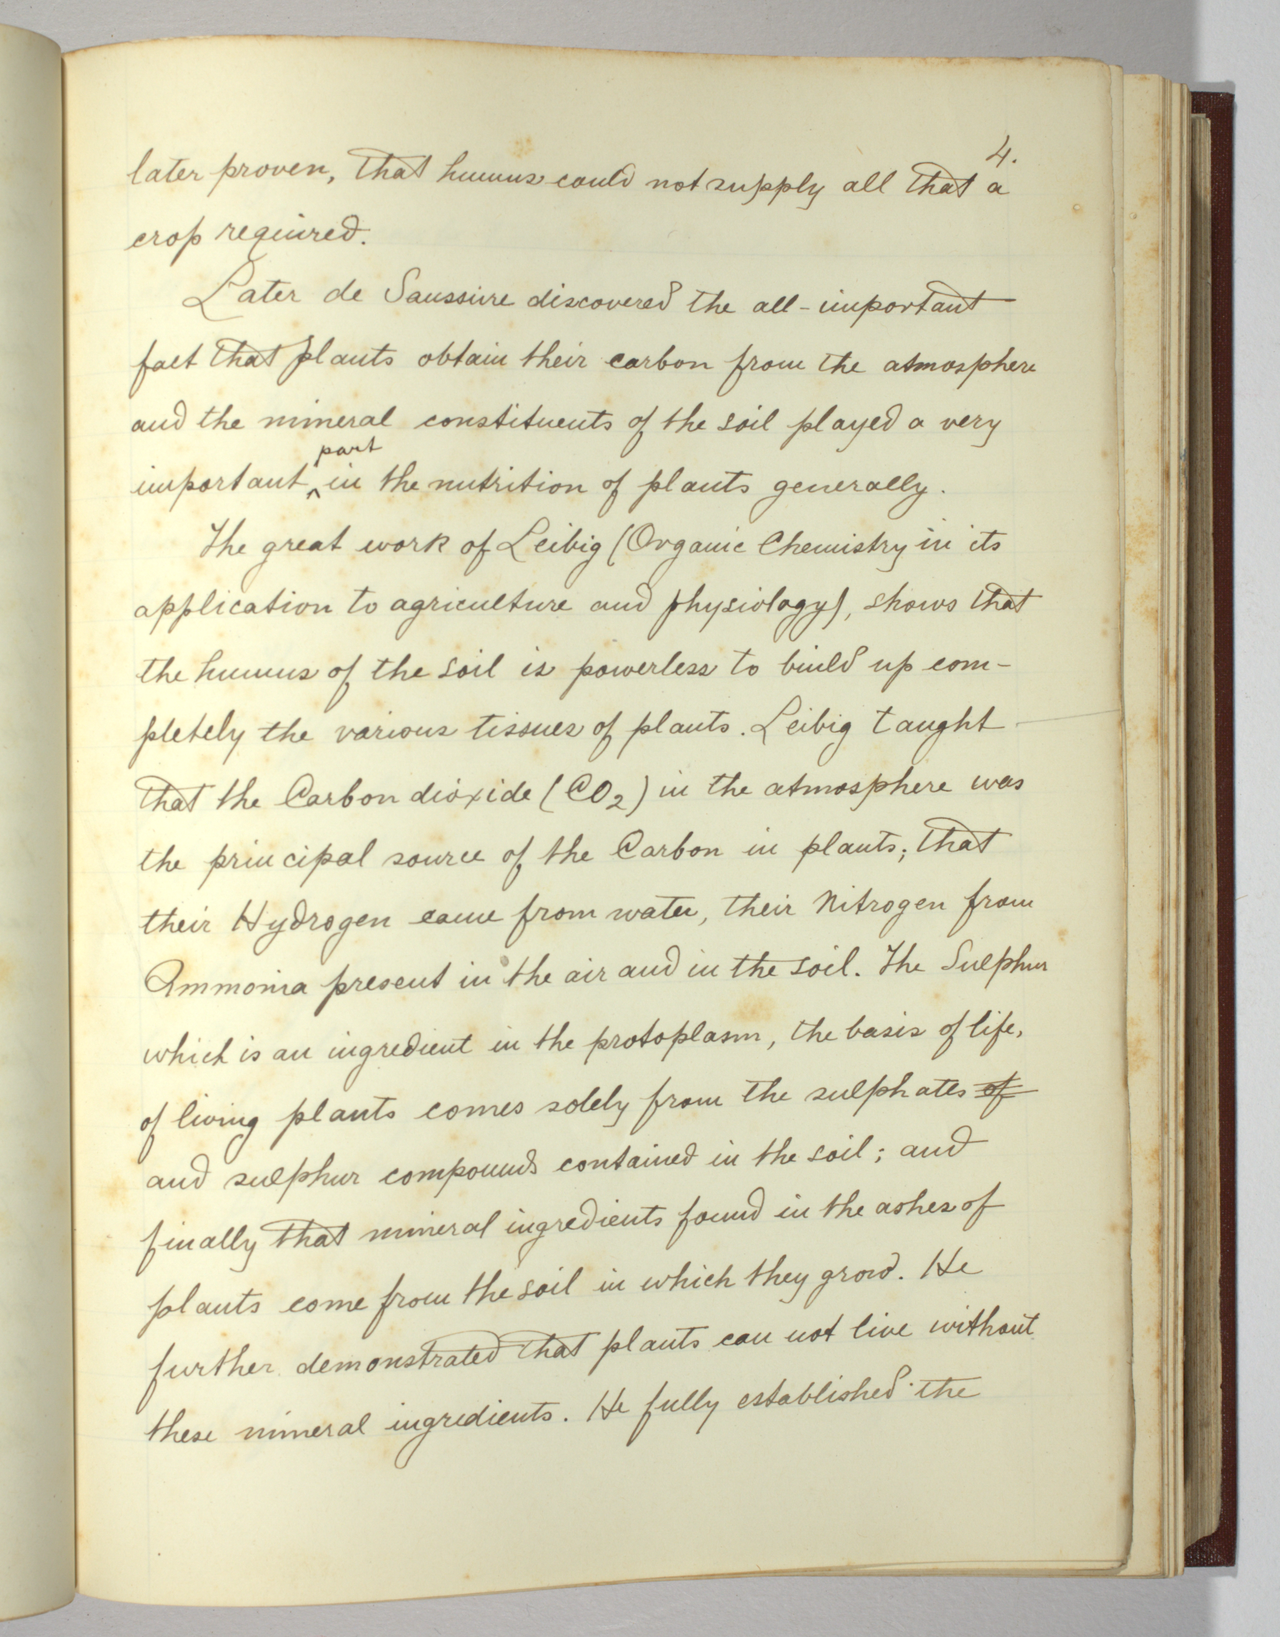 4.
later proven, that humus could not supply all that a
crop required.
Later de Saussure discovered the all-important
fact that plants obtain their carbon from the atmosphere
and the mineral constituents of the soil played a very
part
important ^ in the nutrition of plants generally.
The great work of Leibig (Organic Chemistry in its
application to agriculture and physiology), shows that
the humus of the soil is powerless to build up com-
pletely the various tissues of plants. Leibig taught
that the Carbon dioxide (CO2) in the atmosphere was
the principal source of the Carbon in plants; that
their Hydrogen came from water, their Nitrogen from
Ammonia present in the air and in the soil. The Sulphur
which is an ingredient in the protoplasm, the basis of life,
of living plants comes solely from the sulphates of
and sulphur compounds contained in the soil; and
finally that mineral ingredients found in the ashes of
plants come from the soil in which they grow. He
further demonstrated that plants can not live without
these mineral ingredients. He fully established the